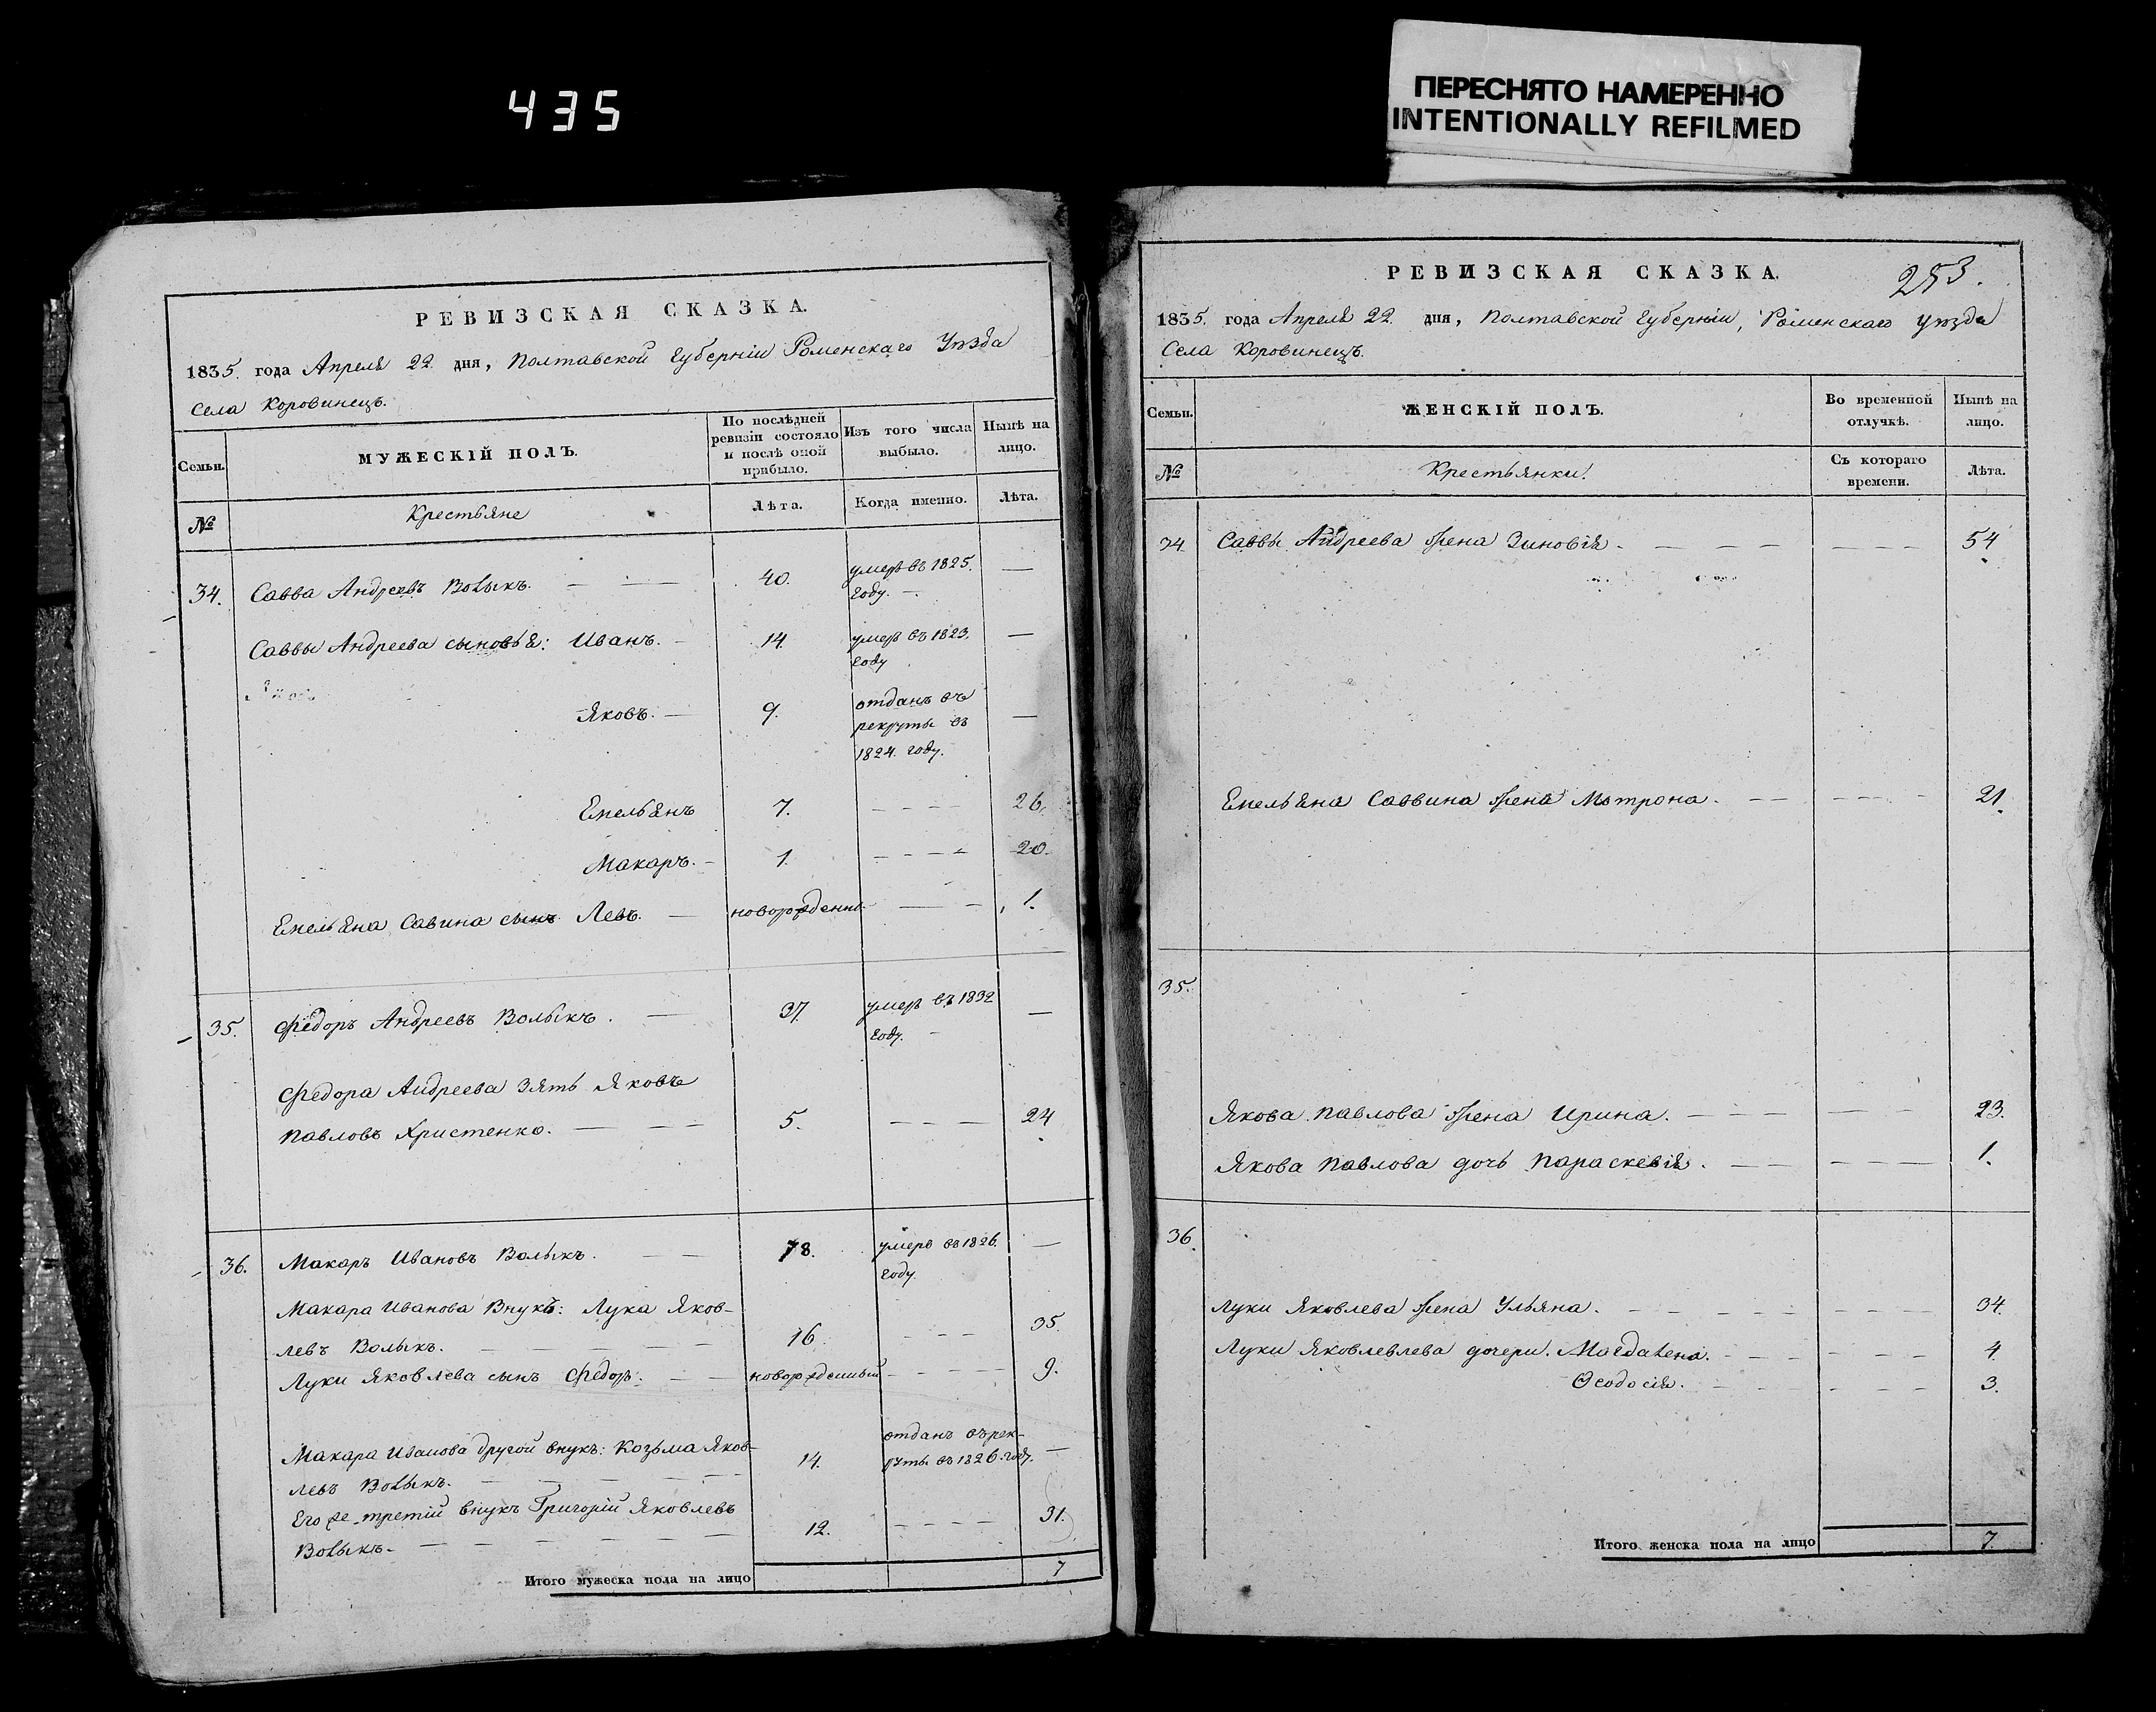 435
ПЕРЕСНЯТО НАМЕРЕННО
INTENTIONALLY REFILMED
РЕВИЗСКАЯ СКАЗКА.
1835. года Апреля 22. дня, Полтавской Губерніи Роменскаго Уѣзда
Села Коровинецъ.
Семьи.
МУЖЕСКІЙ ПОЛЪ.
По послѣдней ревизіи состояло и послѣ оной прибыло.
Изъ того числа выбыло.
Нынѣ на лицо.
№
Крестьяне
Лѣта.
Когда именно.
Лѣта.
34. Савва Андреевъ Волыкъ. 40. умеръ въ 1825.
году.
Саввы Андреева сыновья: Иванъ. 14. умеръ въ 1823.
году
Яковъ. 9. отданъ въ
рекруты въ
1824. году.
Емельянъ 7. 26.
Макаръ. 1. 20.
Емельяна Савина сынъ Левъ. новорожденны. 1.
35. Федоръ Андреевъ Волыкъ. 37. умеръ въ 1832
году.
Федора Андреева зять Яковъ
Павловъ Христенко. 5. 24
36. Макаръ Ивановъ Волыкъ. 78. умеръ въ 1826.
году.
Макара Иванова Внукъ: Лука Яков-
левъ Волыкъ. 16. 35.
Луки Яковлева сынъ Федоръ. новорожденный 9.
Макара Иванова другой внукъ: Козьма Яков-
левъ Волыкъ. 14. отданъ въ рек-
руты въ 1826. году.
Его же третій внукъ Григорій Яковлевъ
Волыкъ. 12. 31.
Итого мужеска пола на лицо 7
РЕВИЗСКАЯ СКАЗКА.
253.
1835. года Апреля 22. дня, Полтавской Губерніи, Роменскаго уѣзда
Села Коровинецъ.
Семьи.
ЖЕНСКІЙ ПОЛЪ.
Во временной отлучкѣ.
Нынѣ на лицо.
№
Крестьянки.
Съ котораго времени.
Лѣта.
34. Саввы Андреева жена Зиновія. 54
Емельяна Саввина жена Мотрона. 21.
35.
Якова Павлова жена Ирина. 23.
Якова Павлова дочь Параскевія. 1.
36.
Луки Яковлева жена Ульяна. 34.
Луки Яковлевлева дочери. Магдалена. 4.
Ѳеодосія. 3.
Итого женска пола на лицо 7.